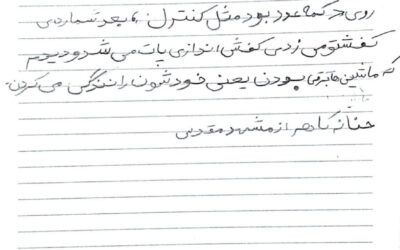 روی در کمد عدد بود مثل کنترل، بعد شماره‌ی
کفشتو می زدی کفش اندازی پات می شد و دیدیم
که ماشین ها برقی بودن یعنی خودشون رانندگی می کردن.
حنانه طاهر از مشهد مقدس